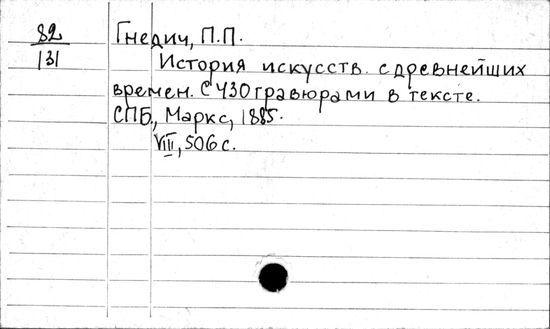 82
131
Гнедич, П.П.
История искусств. с древнейших
времен. С 430 гравюрами в тексте.
СПБ., Маркс, 1885.
VIII, 506 с.